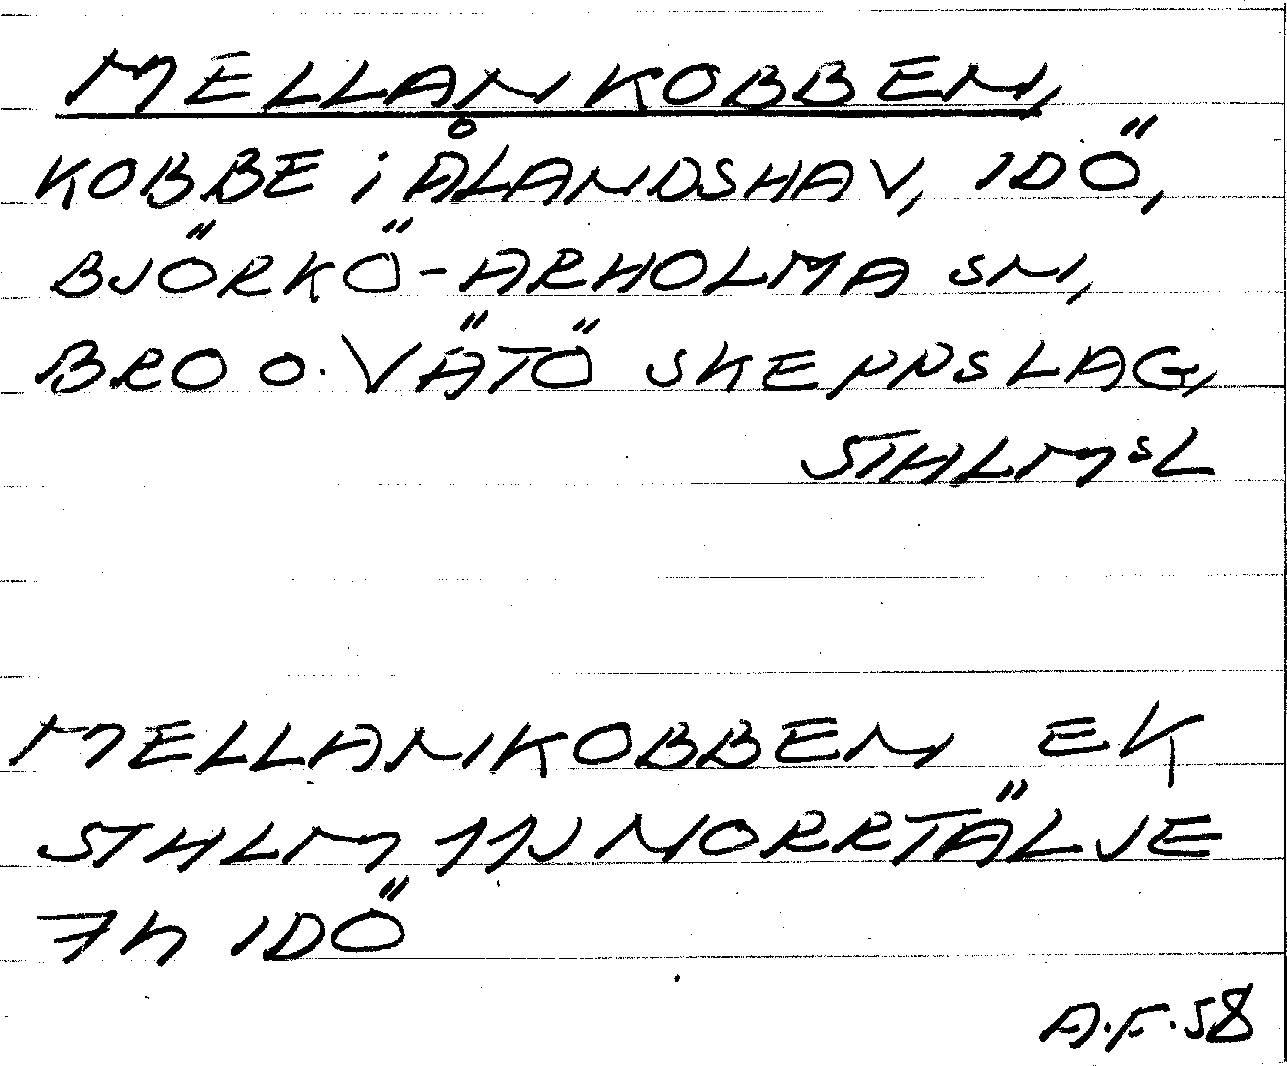 MELLANKOBBEN,
KOBBE i ÅLANDSHAV, IDÖ,
BJÖRKÖ-ARHOLMA SN,
BRO O. VÄTÖ SKEPPSLAG,
STHLMSL
MELLANKOBBEN EK
STHLM 11J NORRTÄLJE
7h IDÖ
A.F.58